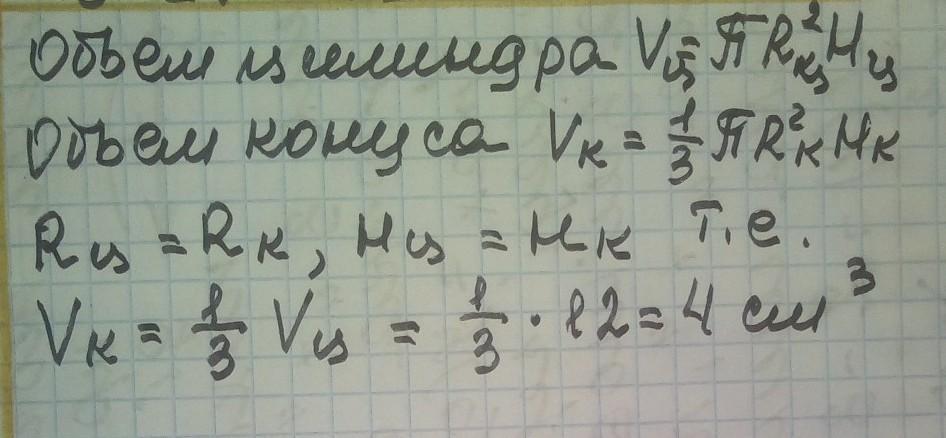 Объем цилиндра Vц = πRц²Hц
Объем конуса Vк = 1/3 πRк²Hк
Rц = Rк, Hц = Hк т.е.
Vк = 1/3 Vц = 1/3 · 12 = 4 см³